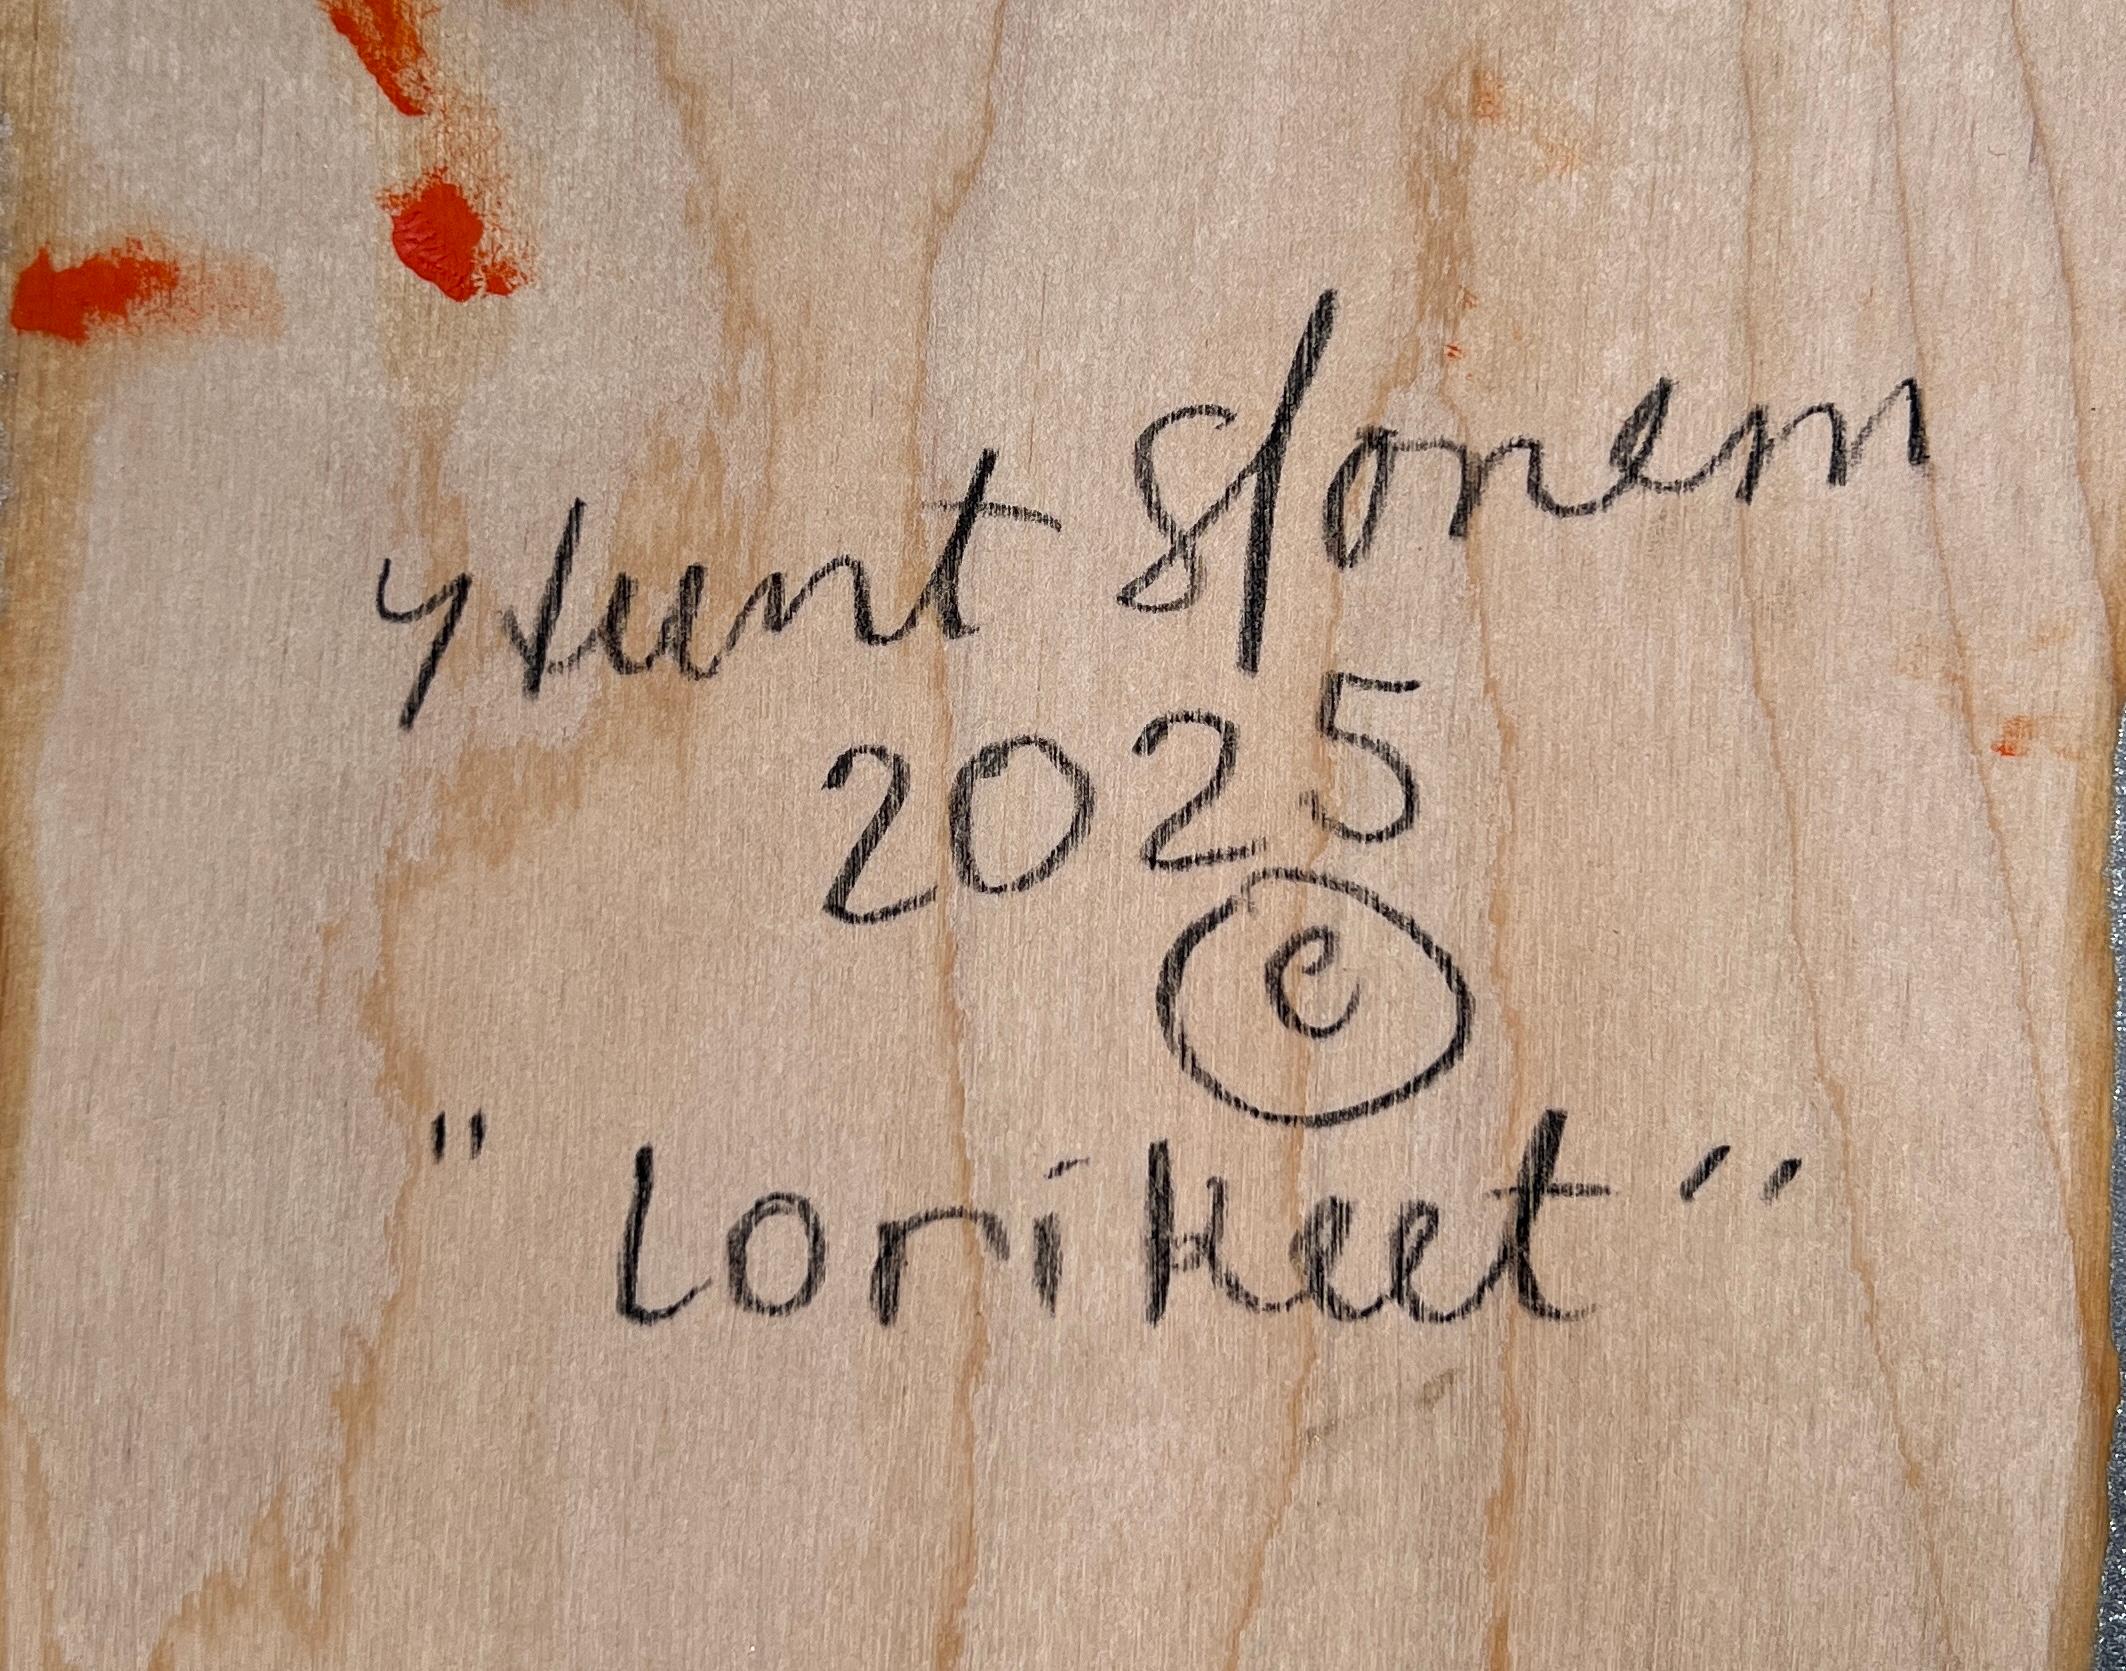 Hunt Slonem
2025
©
"Lorikeet"